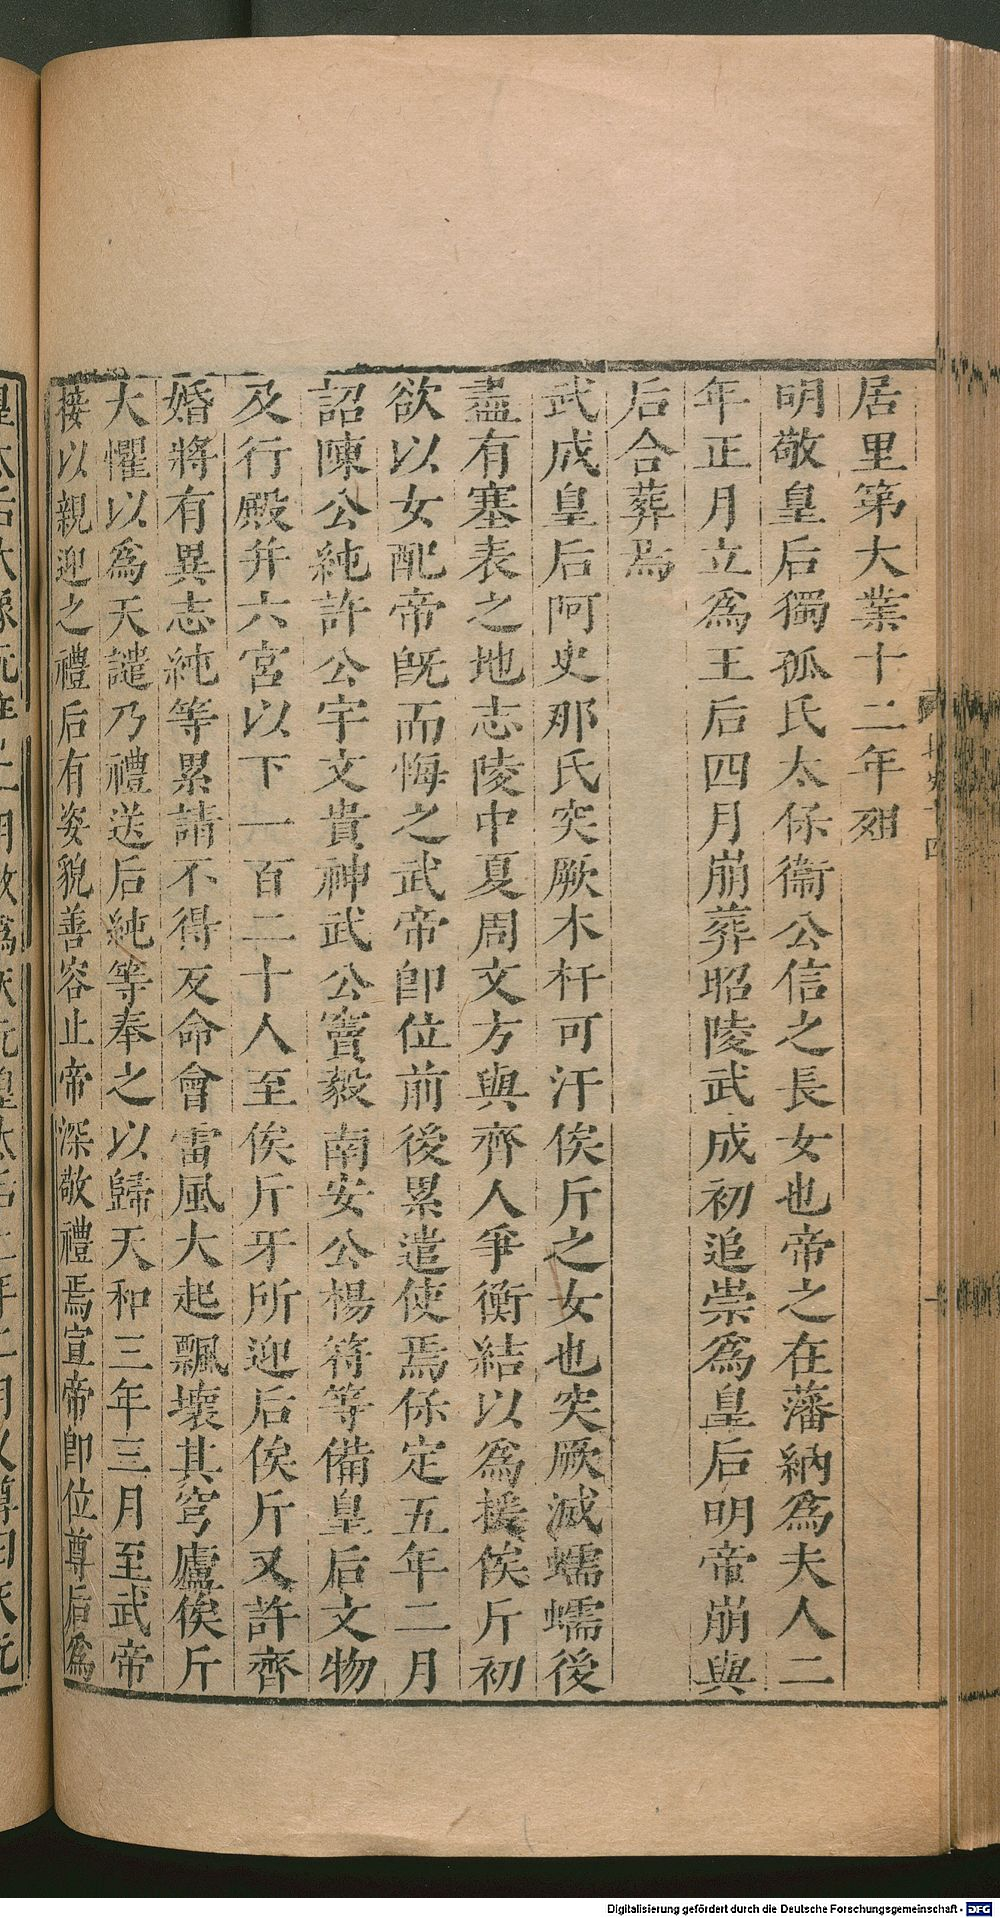 居里第大業十二年殂
明敬皇后獨孤氏太保衞公信之長女也帝之在藩納爲夫人二
年正月立爲王后四月崩葬昭陵武成初追崇爲皇后明帝崩與
后合葬焉
武成皇后阿史那氏突厥木杆可汗俟斤之女也突厥滅蠕蠕後
盡有塞表之地志陵中夏周文方與齊人爭衡結以爲援俟斤初
欲以女配帝旣而悔之武帝卽位前後累遣使焉保定五年二月
詔陳公純許公宇文貴神武公竇毅南安公楊荐等備皇后文物
及行殿并六宮以下一百二十人至俟斤牙所迎后俟斤又許齊
婚將有異志純等累請不得反命會雷風大起飄壞其穹廬俟斤
大懼以爲天譴乃禮送后純等奉之以歸天和三年三月至武帝
接以親迎之禮后有姿貌善容止帝深敬禮焉宣帝卽位尊后爲
皇太后大 二月 爲天元皇太后二年二月又尊曰天元
Digitalisierung gefördert durch die Deutsche Forschungsgemeinschaft - DFG